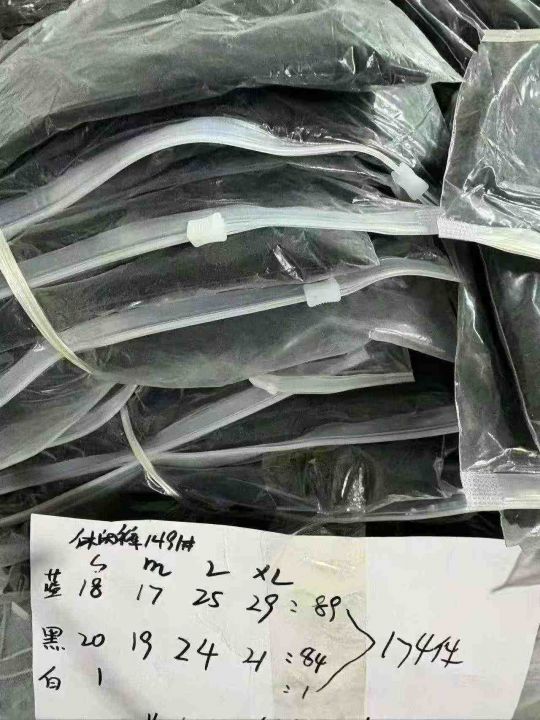 休闲裤149#
S M L XL
蓝 18 17 25 29 : 89
黑 20 19 24 21 : 84
白 1 : 1
174件